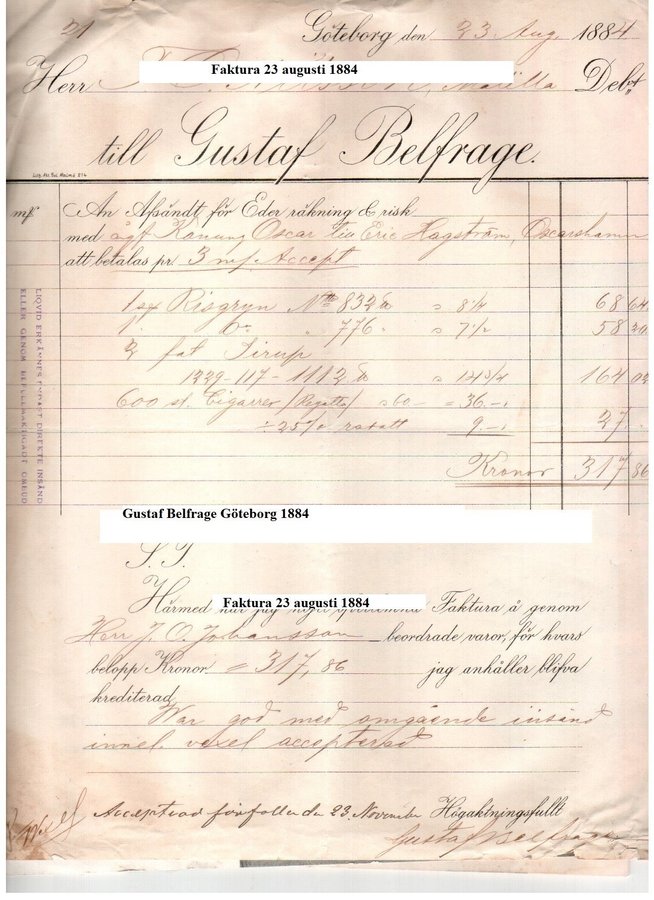 21 Göteborg den 23 Aug. 1884
Faktura 23 augusti 1884
Herr Målilla Debet
till Gustaf Belfrage.
An Afsändt för Eder räkning & risk
med Konung Oscar via Eric Hagström, Oscarshamn
att betalas pr. 3 m/. Accept
1 sx Risgryn No 832 a 8 1/4 68 64
1 Do " 776 " a 7 1/2 58 20
2 fat Sirup
1229-117-1112 a 14 3/4 164 02
600 st. Cigarrer (Regatta) a 60- = 36.-
÷ 25% rabatt 9.- 27.
Kronor 317 86
LIQVID ERKÄNNES ENDAST DIREKTE INSÄND
ELLER GENOM BEFULLMÄKTIGADT OMBUD
Gustaf Belfrage Göteborg 1884
S. T.
Härmed har jag nöjet Faktura å genom
Faktura 23 augusti 1884
Herr J. O. Johansson beordrade varor, för hvars
belopp Kronor = 317,86 jag anhåller blifva
krediterad
War god med omgående insänd
innel. vexel accepterad
Accepterad förfallen den 23. November Högaktningsfullt
Gustaf Belfrage